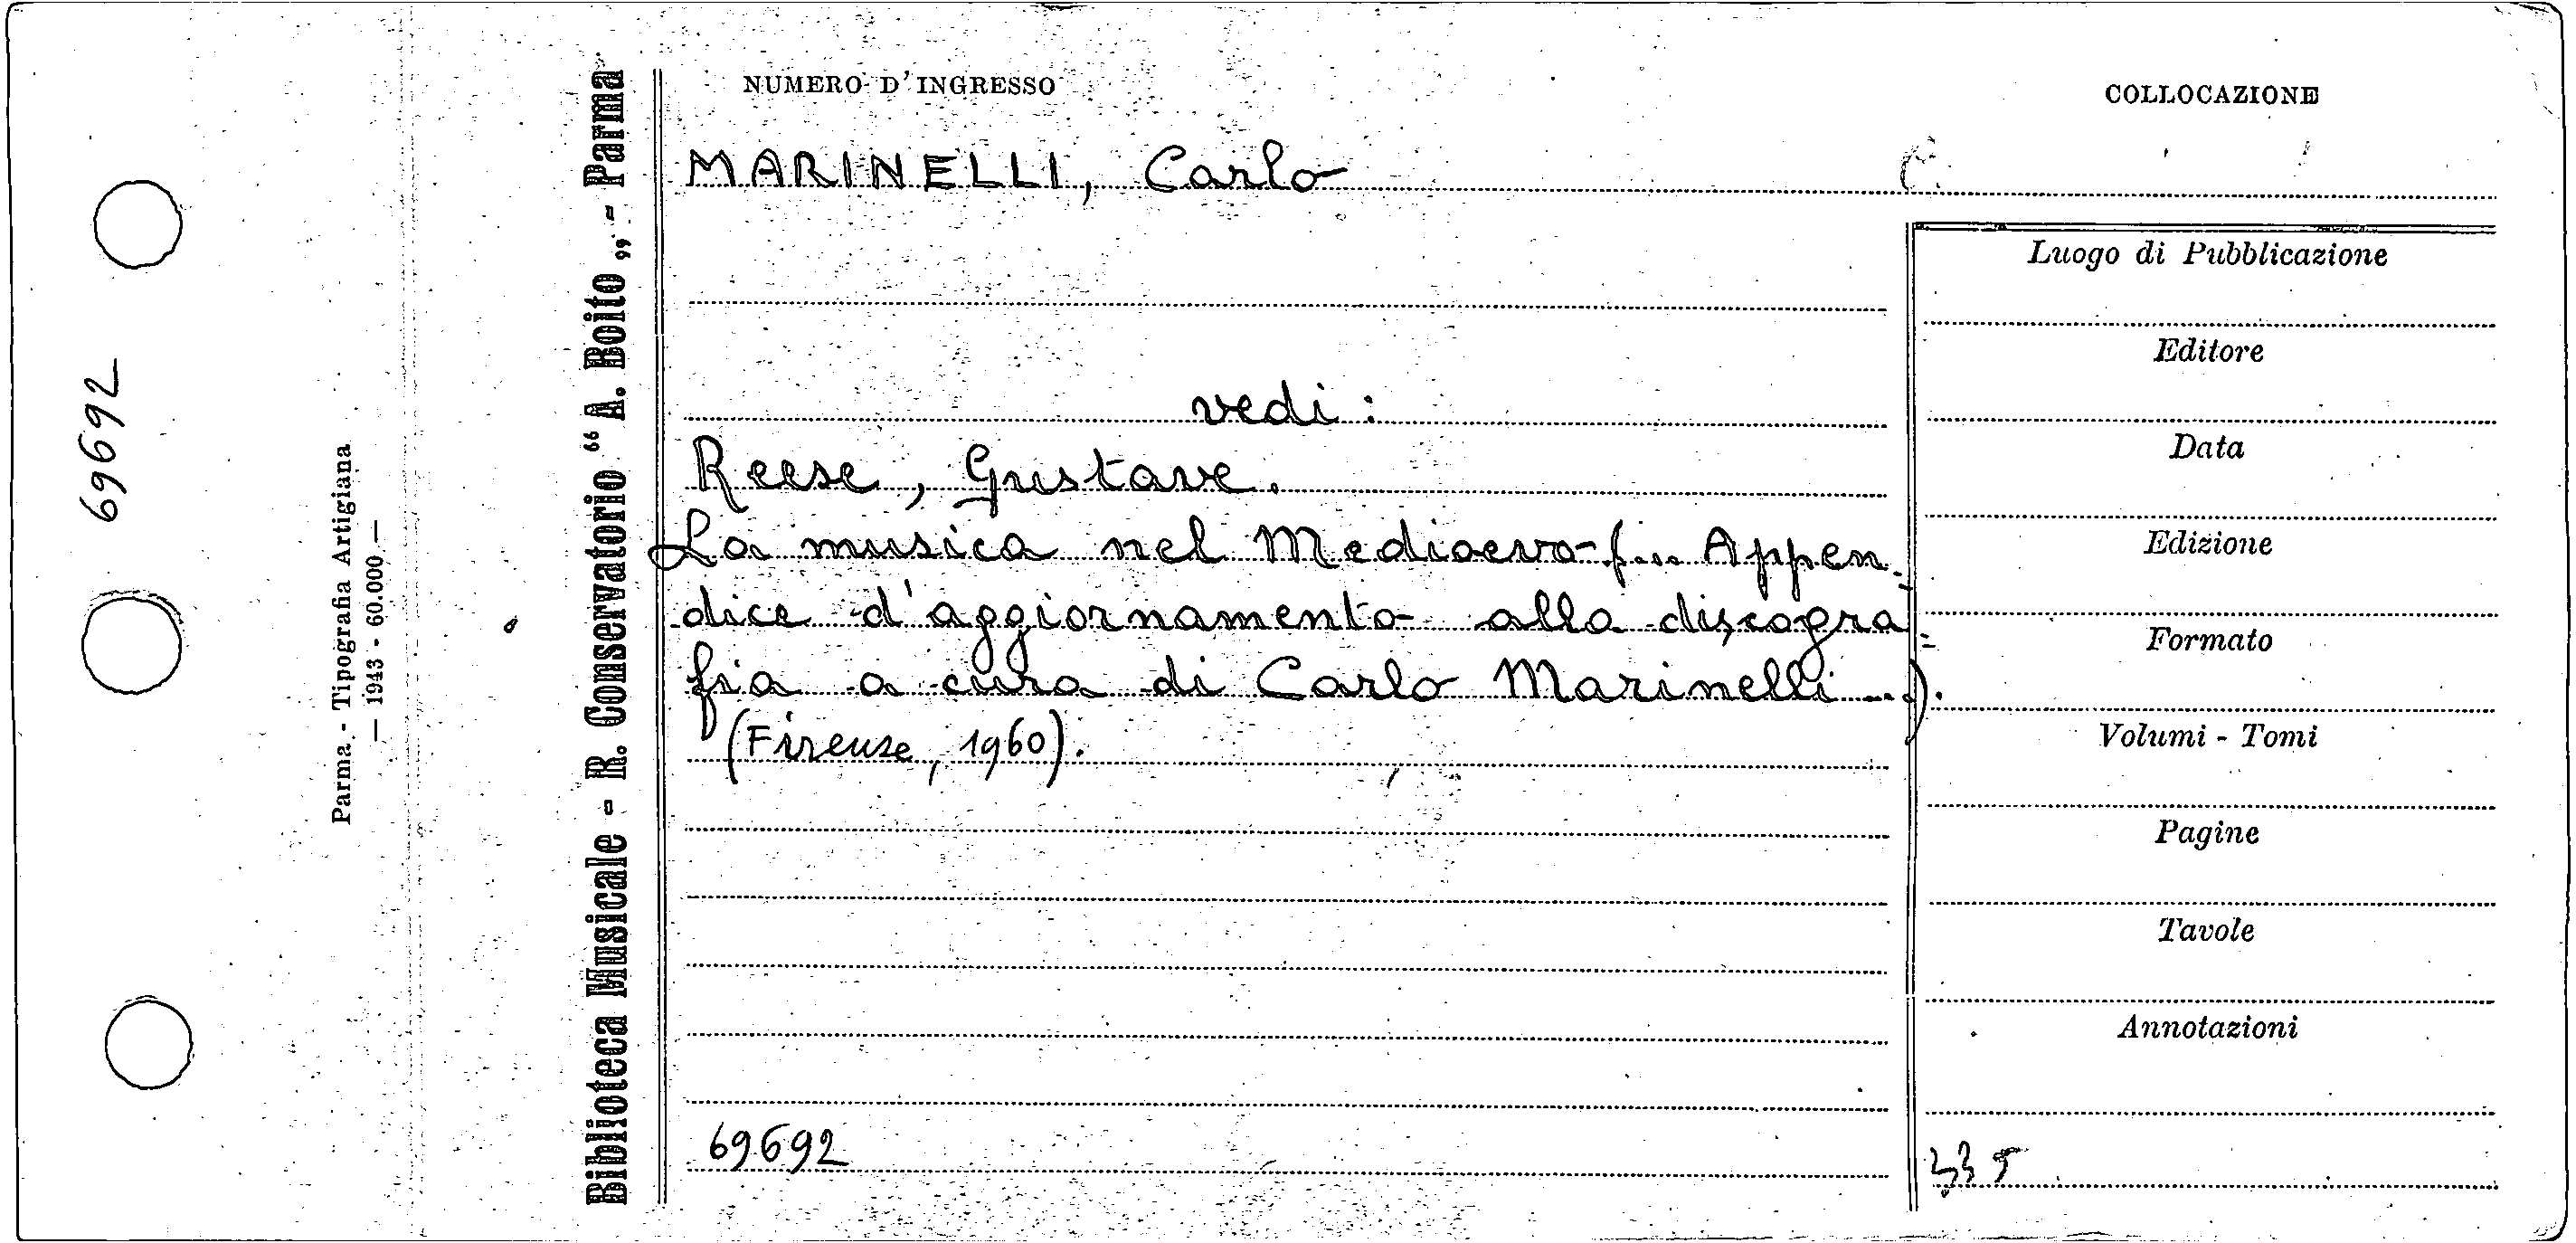 69692
Parma - Tipografia Artigiana
— 1943 - 60.000 —
Biblioteca Musicale - R. Conservatorio “A. Boito„ - Parma
NUMERO D'INGRESSO
COLLOCAZIONE
MARINELLI, Carlo
vedi:
Reese, Gustave.
La musica nel Medioevo (... Appen=
dice d'aggiornamento alla discogra=
fia a cura di Carlo Marinelli ...).
(Firenze, 1960).
69692
Luogo di Pubblicazione
Editore
Data
Edizione
Formato
Volumi - Tomi
Pagine
Tavole
Annotazioni